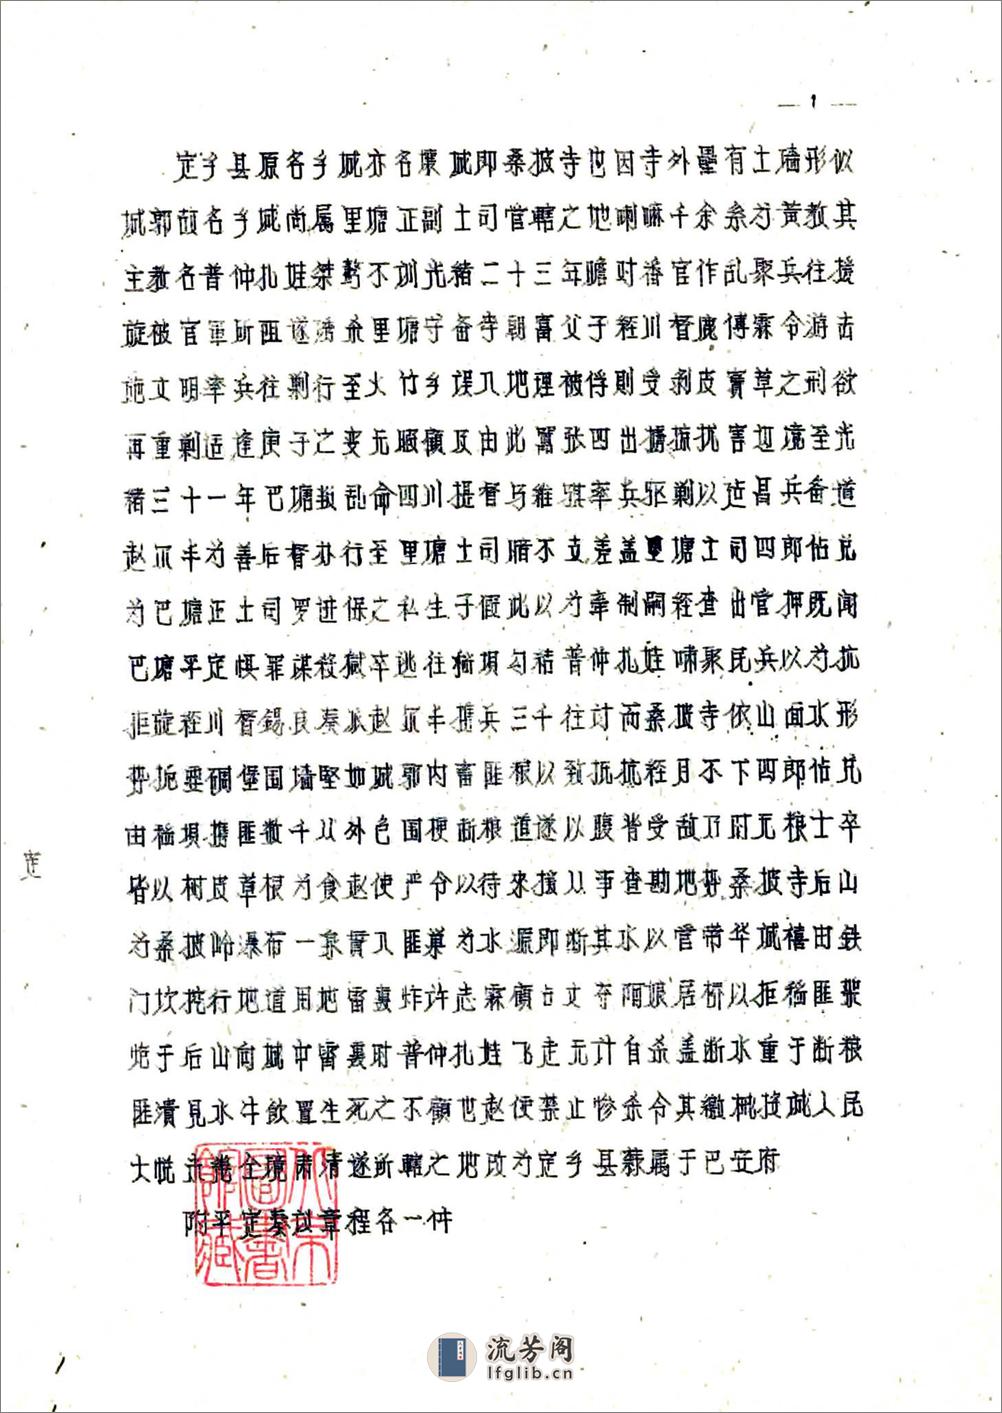 — 1 —
定乡县原名乡城亦名壤城即桑披寺也因寺外壘有土墙形似
城郭故名乡城尚属里塘正副土司官辖之地喇嘛千余系为黄教其
主教名普仲扎娃桀驁不训光绪二十三年瞻对番官作乱聚兵往援
旋被官軍所阻遂誘杀里塘守备寺朝富父子经川督鹿傳霖令游击
施文明率兵往剿行至火竹乡误入地理被俘則受剥皮實草之刑欲
再重剿适逢庚子之变无暇顧及由此嚣张四出擄掠扰害边境至光
绪三十一年巴塘叛乱命四川提督马維騏率兵驱剿以建昌兵备道
赵尔丰为善后督办行至里塘土司暗不支差盖里塘土司四郎佔兑
为巴塘正土司罗进保之私生子假此以为牵制嗣经查出管押既闻
巴塘平定惧罪谋杀獄卒逃往稻坝勾结普仲扎娃啸聚民兵以为抗
拒旋经川督錫良奏派赵尔丰攜兵三千往讨而桑披寺依山面水形
势扼要碉堡围墙堅如城郭内畜匪粮以致抵抗经月不下四郎佔兑
由稻坝攜匪数千从外包围梗断粮道遂以腹背受敌乃时无粮士卒
皆以树皮草根为食赵使严令以待来援从事查勘地势桑披寺后山
为桑披岭瀑布一泉贯入匪巢为水源即断其水以管带华城禧由鉄
门坎挖行地道用地雷轰炸许志霖顧占文夺隬娘居桥以拒稻匪架
炮于后山向城中雷轰时普仲扎娃飞走无计自杀盖断水重于断粮
匪潰見水牛飲置生死之不顧也赵使禁止惨杀令其繳械投诚人民
大悦
全境肃清遂所轄之地改为定乡县隸属于巴安府
附平定奏议章程各一件
定
图書館藏
流芳阁
lfglib.cn